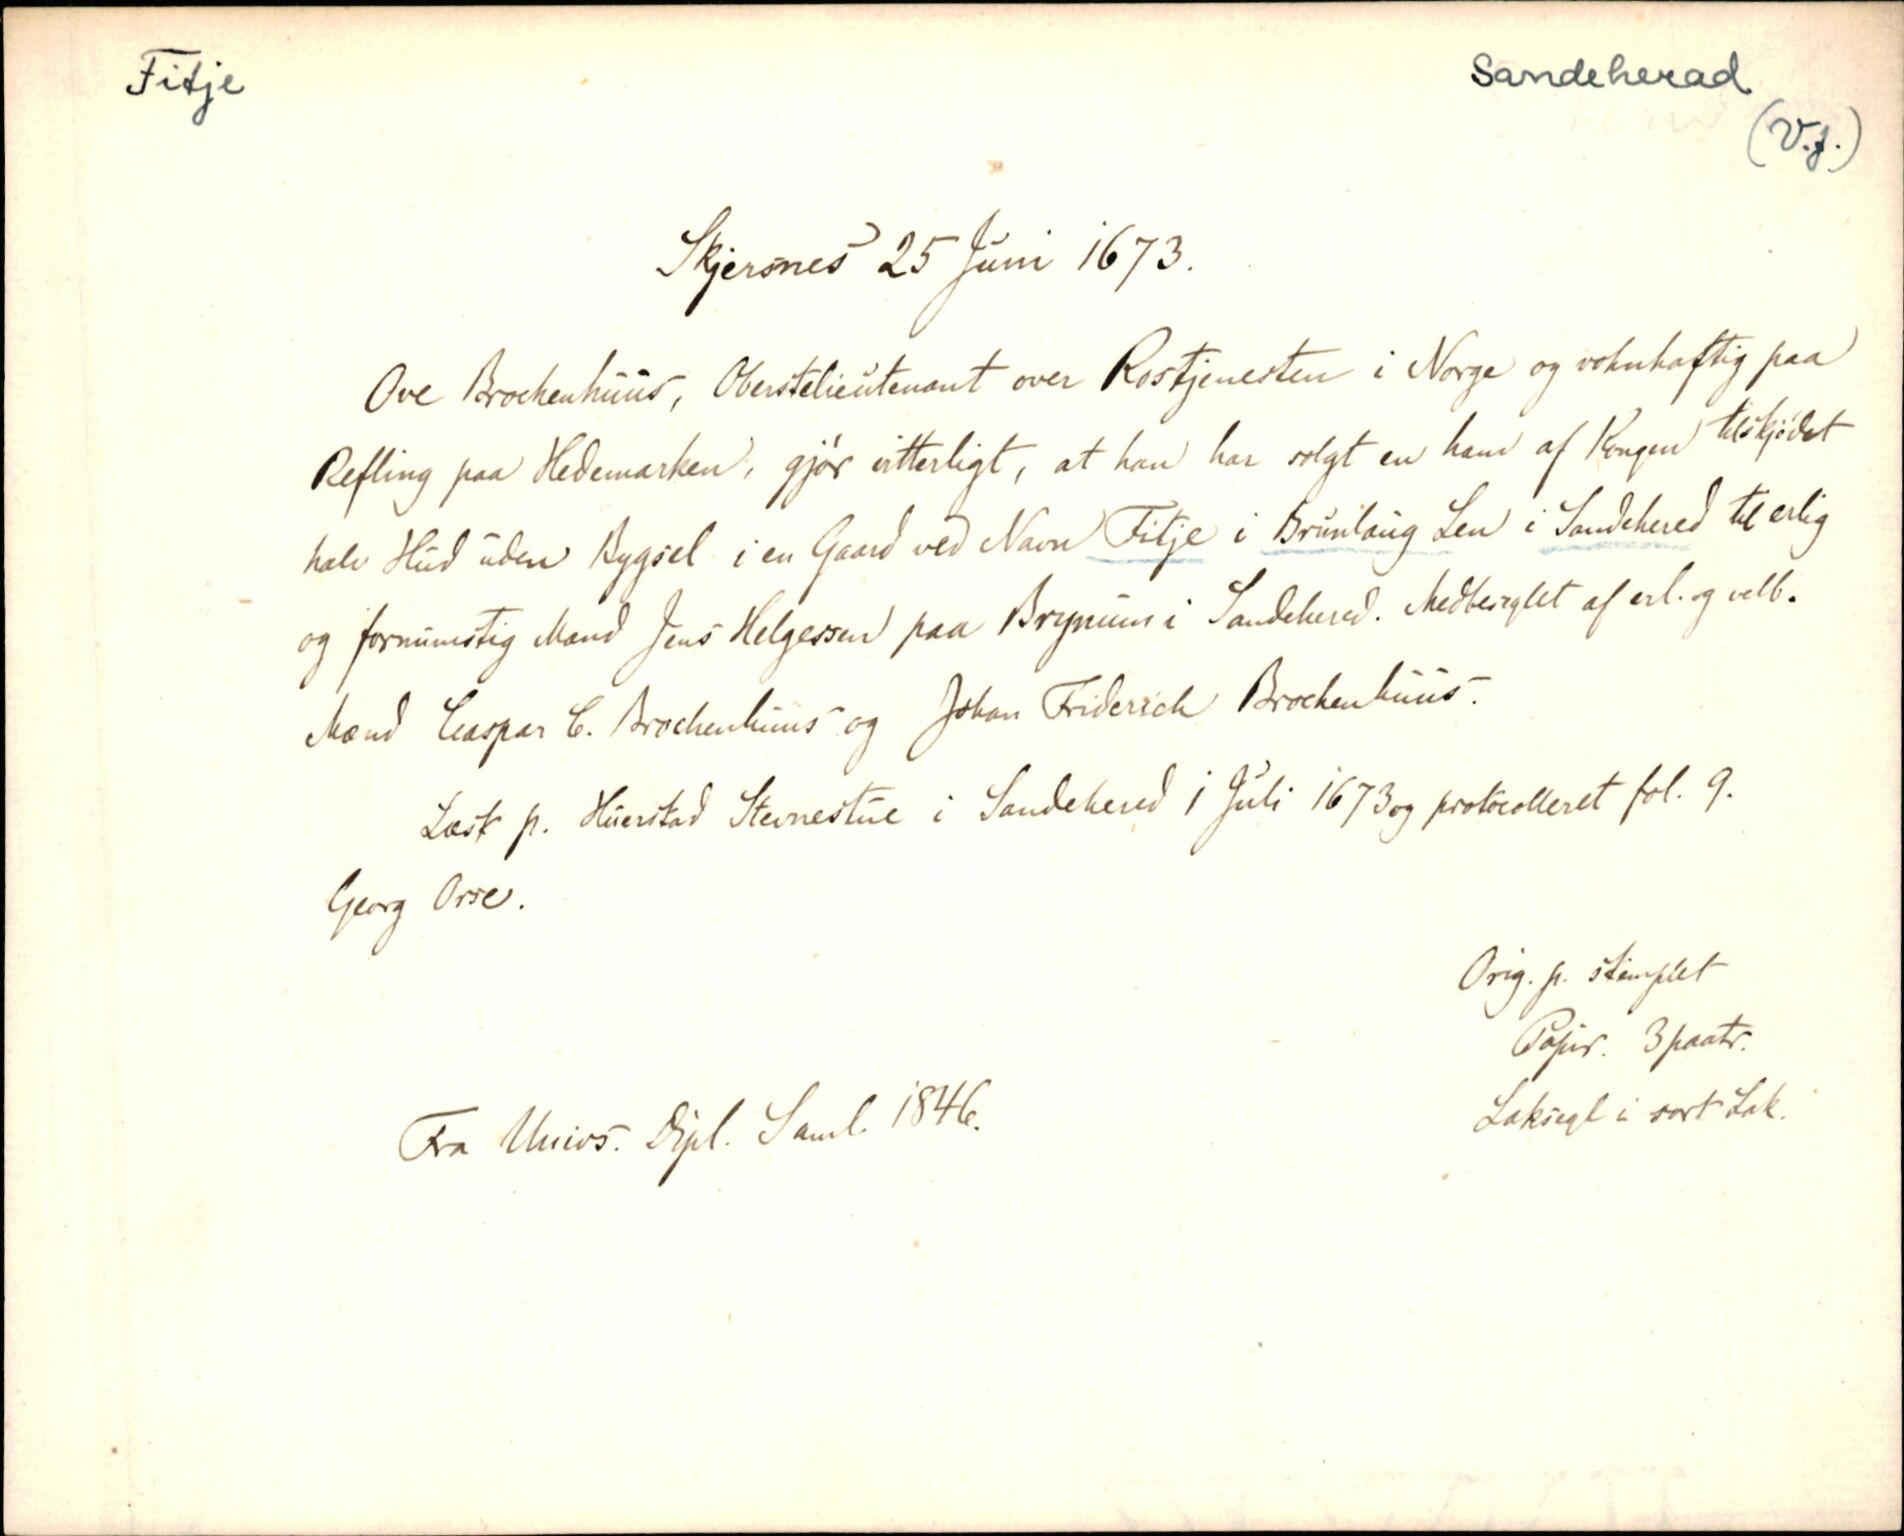 Fitje
Sandeherad
(V.f.)
Skjersnes 25 Juni 1673.
Ove Brockenhuus, Oberstelieutenant over Rostjenesten i Norge og vohnhaftig paa
Refling paa Hedemarken, gjör vitterligt, at han har solgt en ham af Kongen tilskjödet
halv Hud uden Bygsel i en Gaard ved Navn Fitje i Brunlaug Len i Sandehered til erlig
og fornumstig Mand Jens Helgessen paa Brynum i Sandehered. Medbeseglet af erl. og velb.
Mænd Caspar C. Brochenhuus og Johan Friderich Brockenhuus.
Læst p. Huerstad Stevnestue i Sandehered 1 Juli 1673 og protocolleret fol. 9.
Georg Orse.
Orig. p. stemplet
Papir. 3 paatr.
Laksegl i sort Lak.
Fra Univs. Dipl. Saml. 1846.